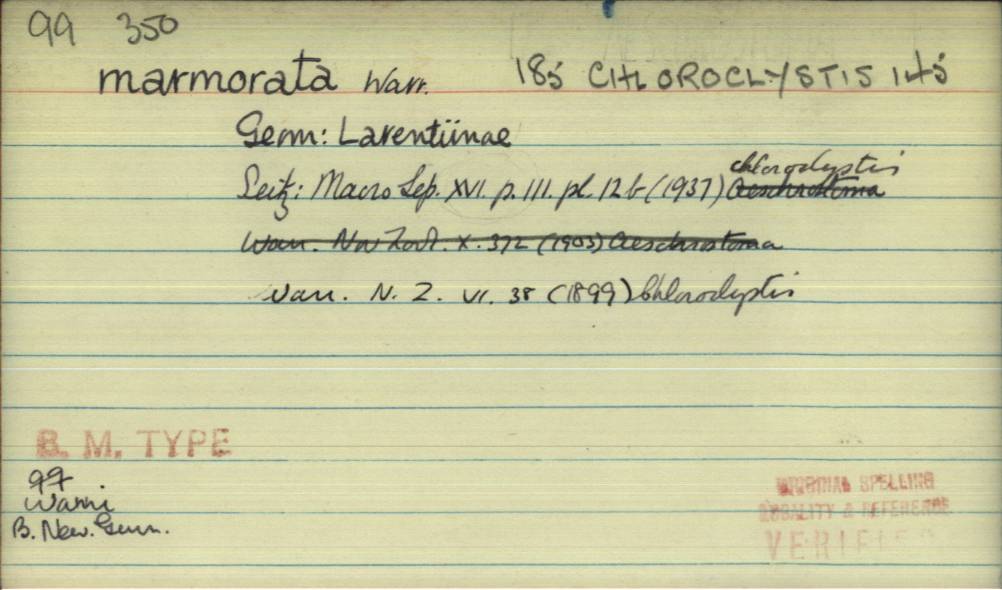 99 350
marmorata Warr. 185 CHLOROCLYSTIS 145
Geom: Larentiinae
chloroclystis
Seitz: Macro Lep. XVI. p. 111. pl. 12 b (1937) Aeschrostoma
Warr. Nov Zool. X. 372 (1903) Aeschrostoma
Warr. N. Z. VI. 38 (1899) Chloroclystis
B. M. TYPE
99
B. New. Guin.
ORIGINAL SPELLING
LOCALITY & REFERENCE
VERIFIED